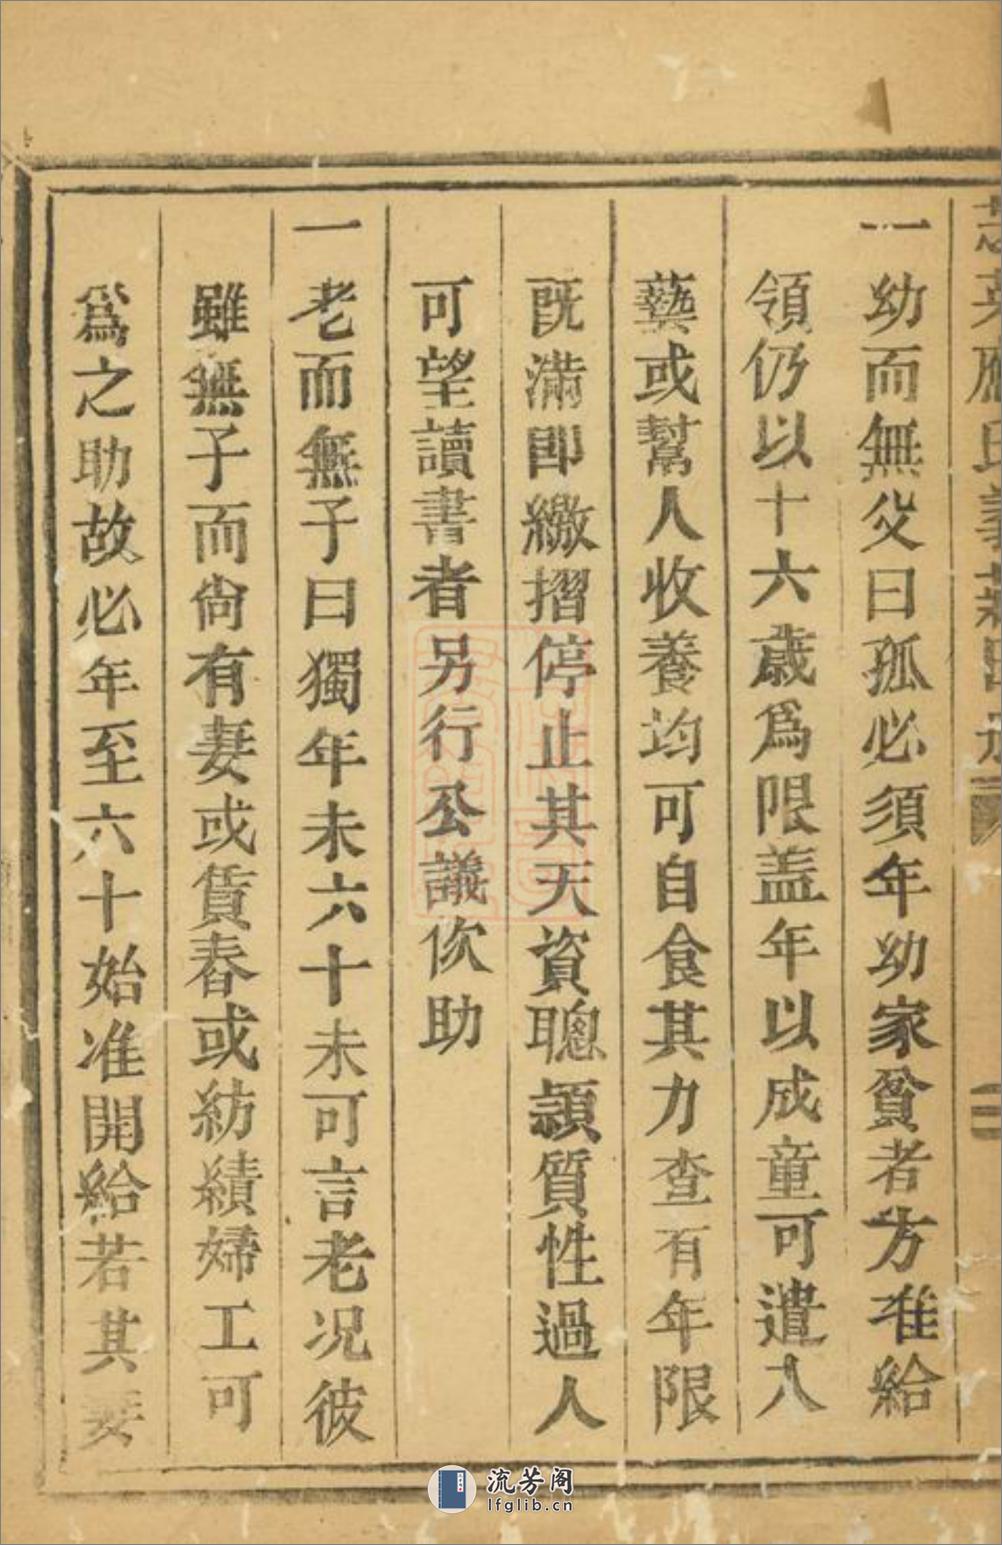 一幼而無父曰孤必須年幼家貧者方准給
領仍以十六歲爲限蓋年以成童可遣入
藝或幫人收養均可自食其力查有年限
既滿即繳摺停止其天資聰頴質性過人
可望讀書者另行公議佽助
一老而無子曰獨年未六十未可言老况彼
雖無子而尙有妻或賃舂或紡績婦工可
爲之助故必年至六十始准開給若其妻
流芳阁
lfglib.cn